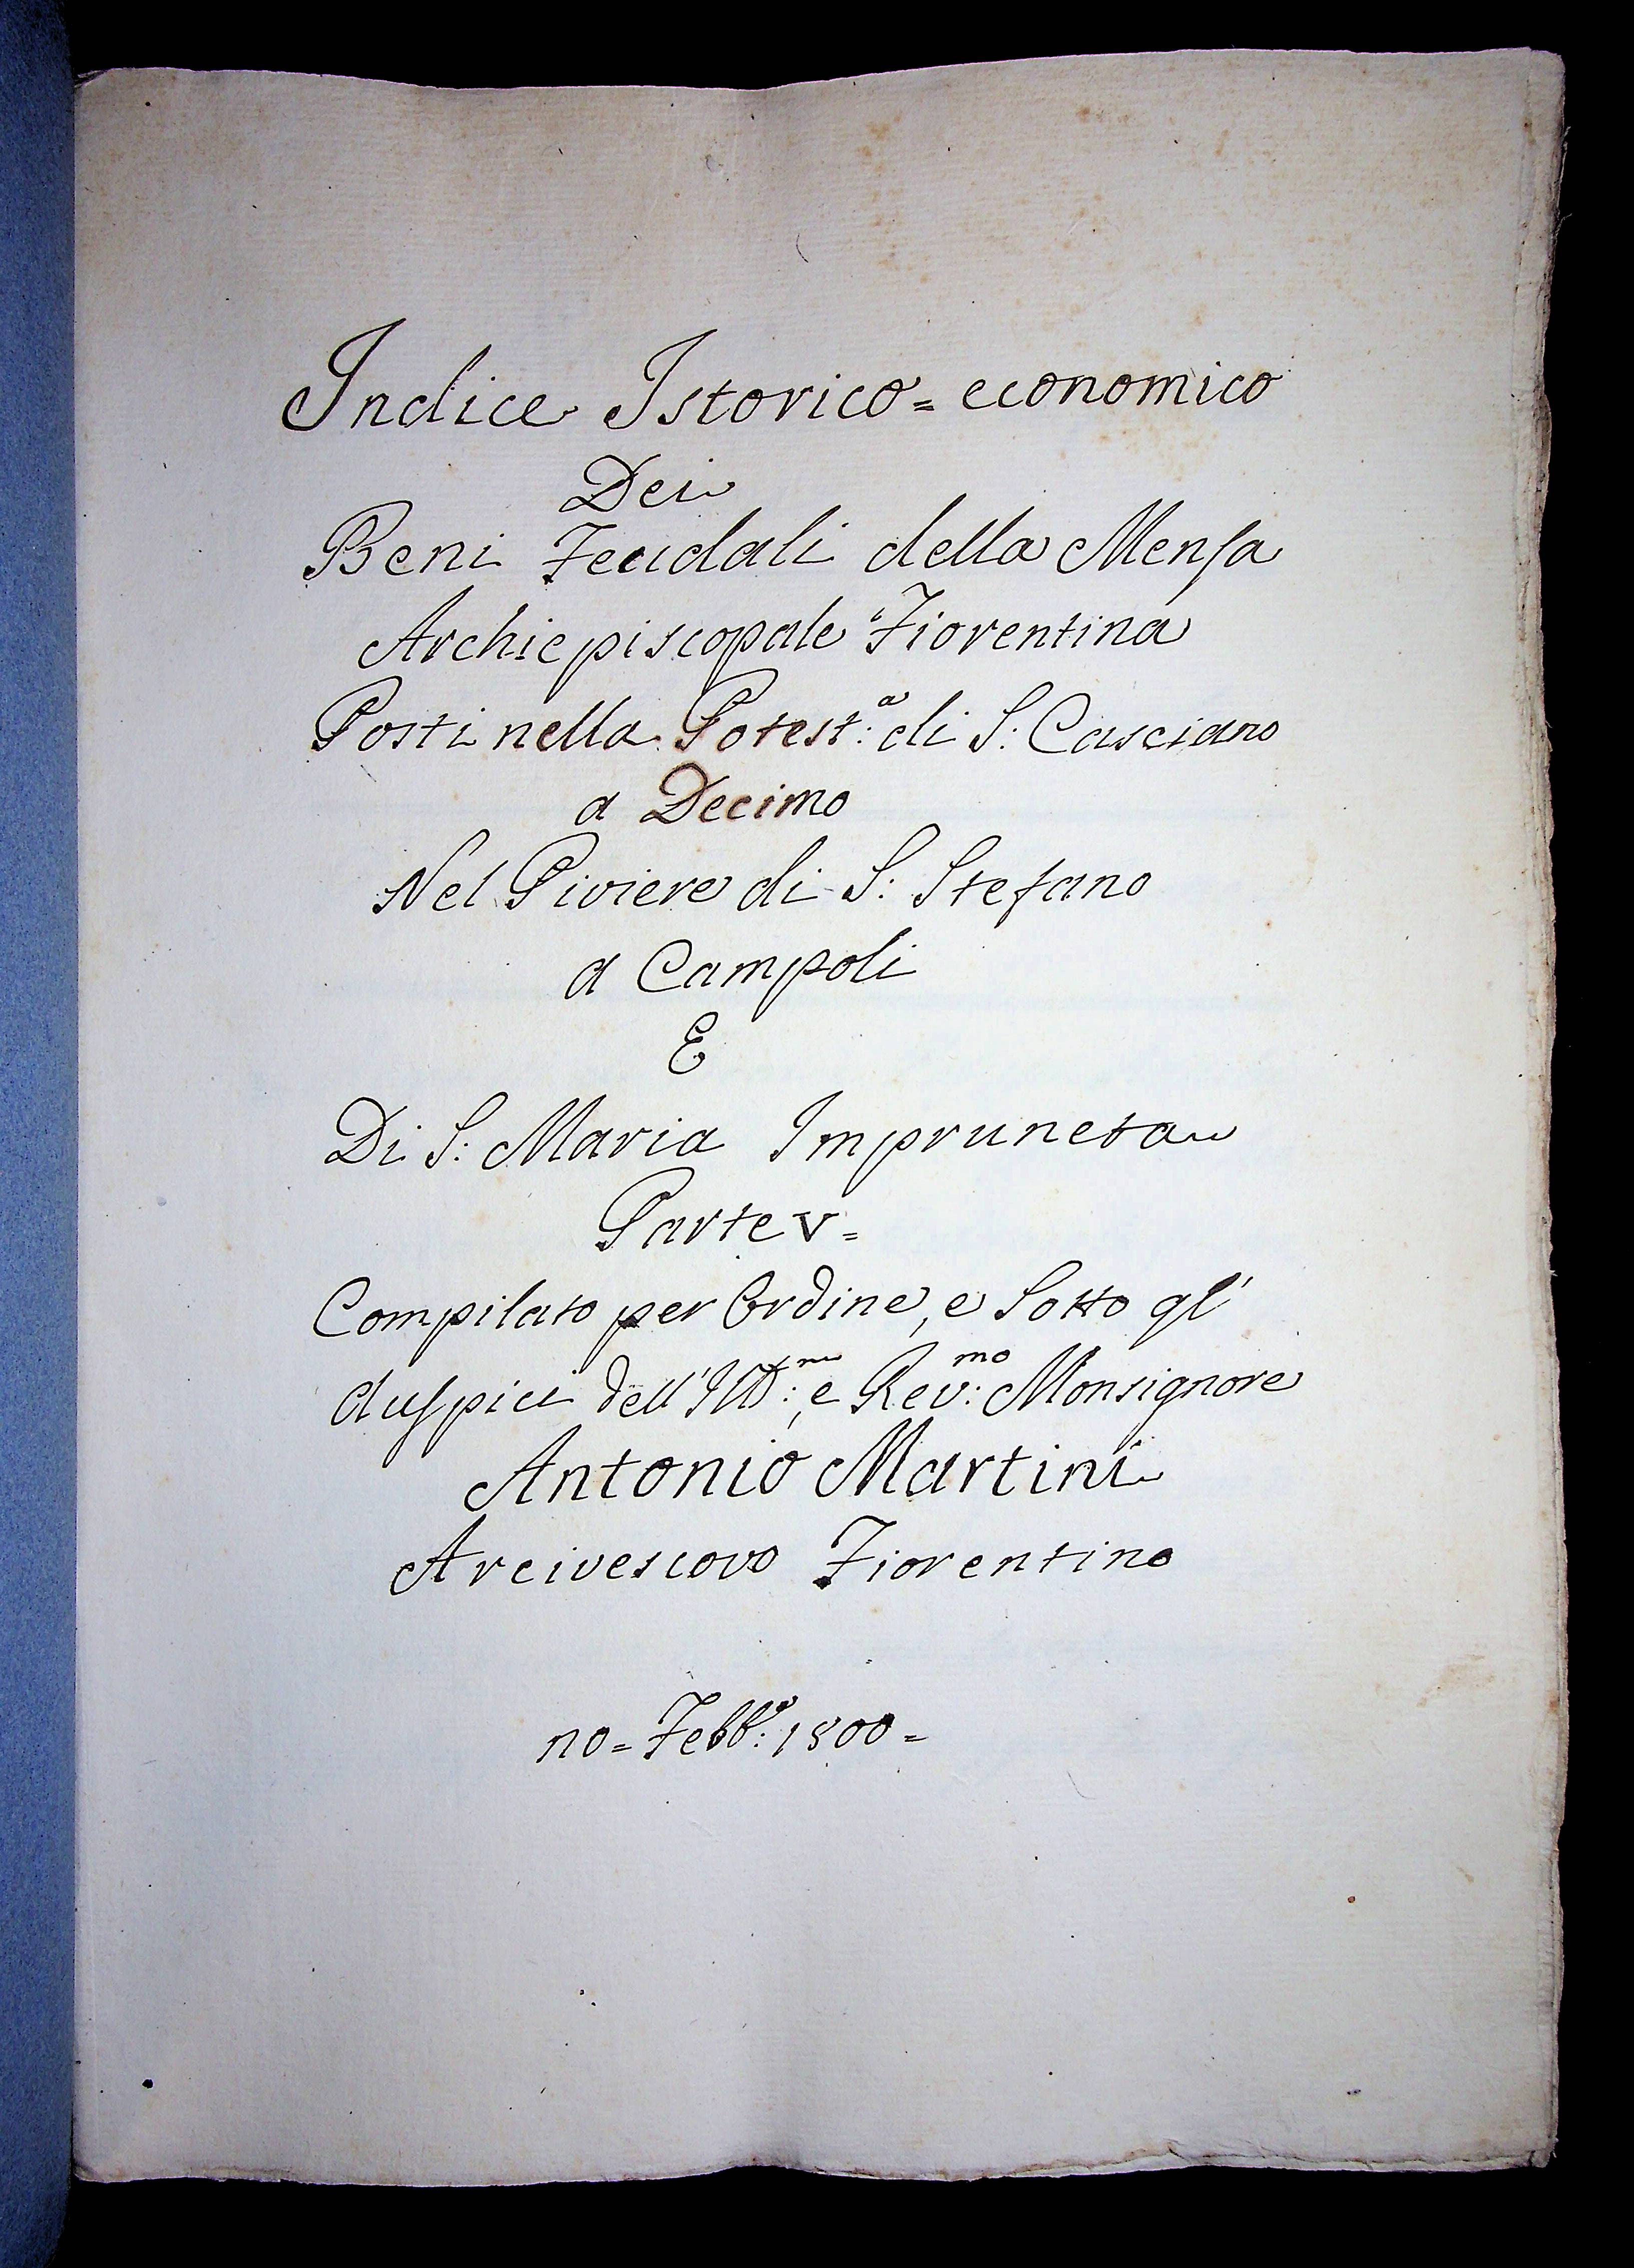 Indice Istorico=economico
Dei
Beni Feudali della Mensa
Archiepiscopale Fiorentina
Posti nella Potest:ᵃ di S: Casciano
a Decimo
Nel Piviere di S: Stefano
a Campoli
E
Di S: Maria Impruneta
Parte V=
Compilato per Ordine, e Sotto gl'
auspici dell' Ill:ᵐᵒ, e Rev:ᵐᵒ Monsignore
Antonio Martini
Arcivescovo Fiorentino
no=Febb:º 1800=